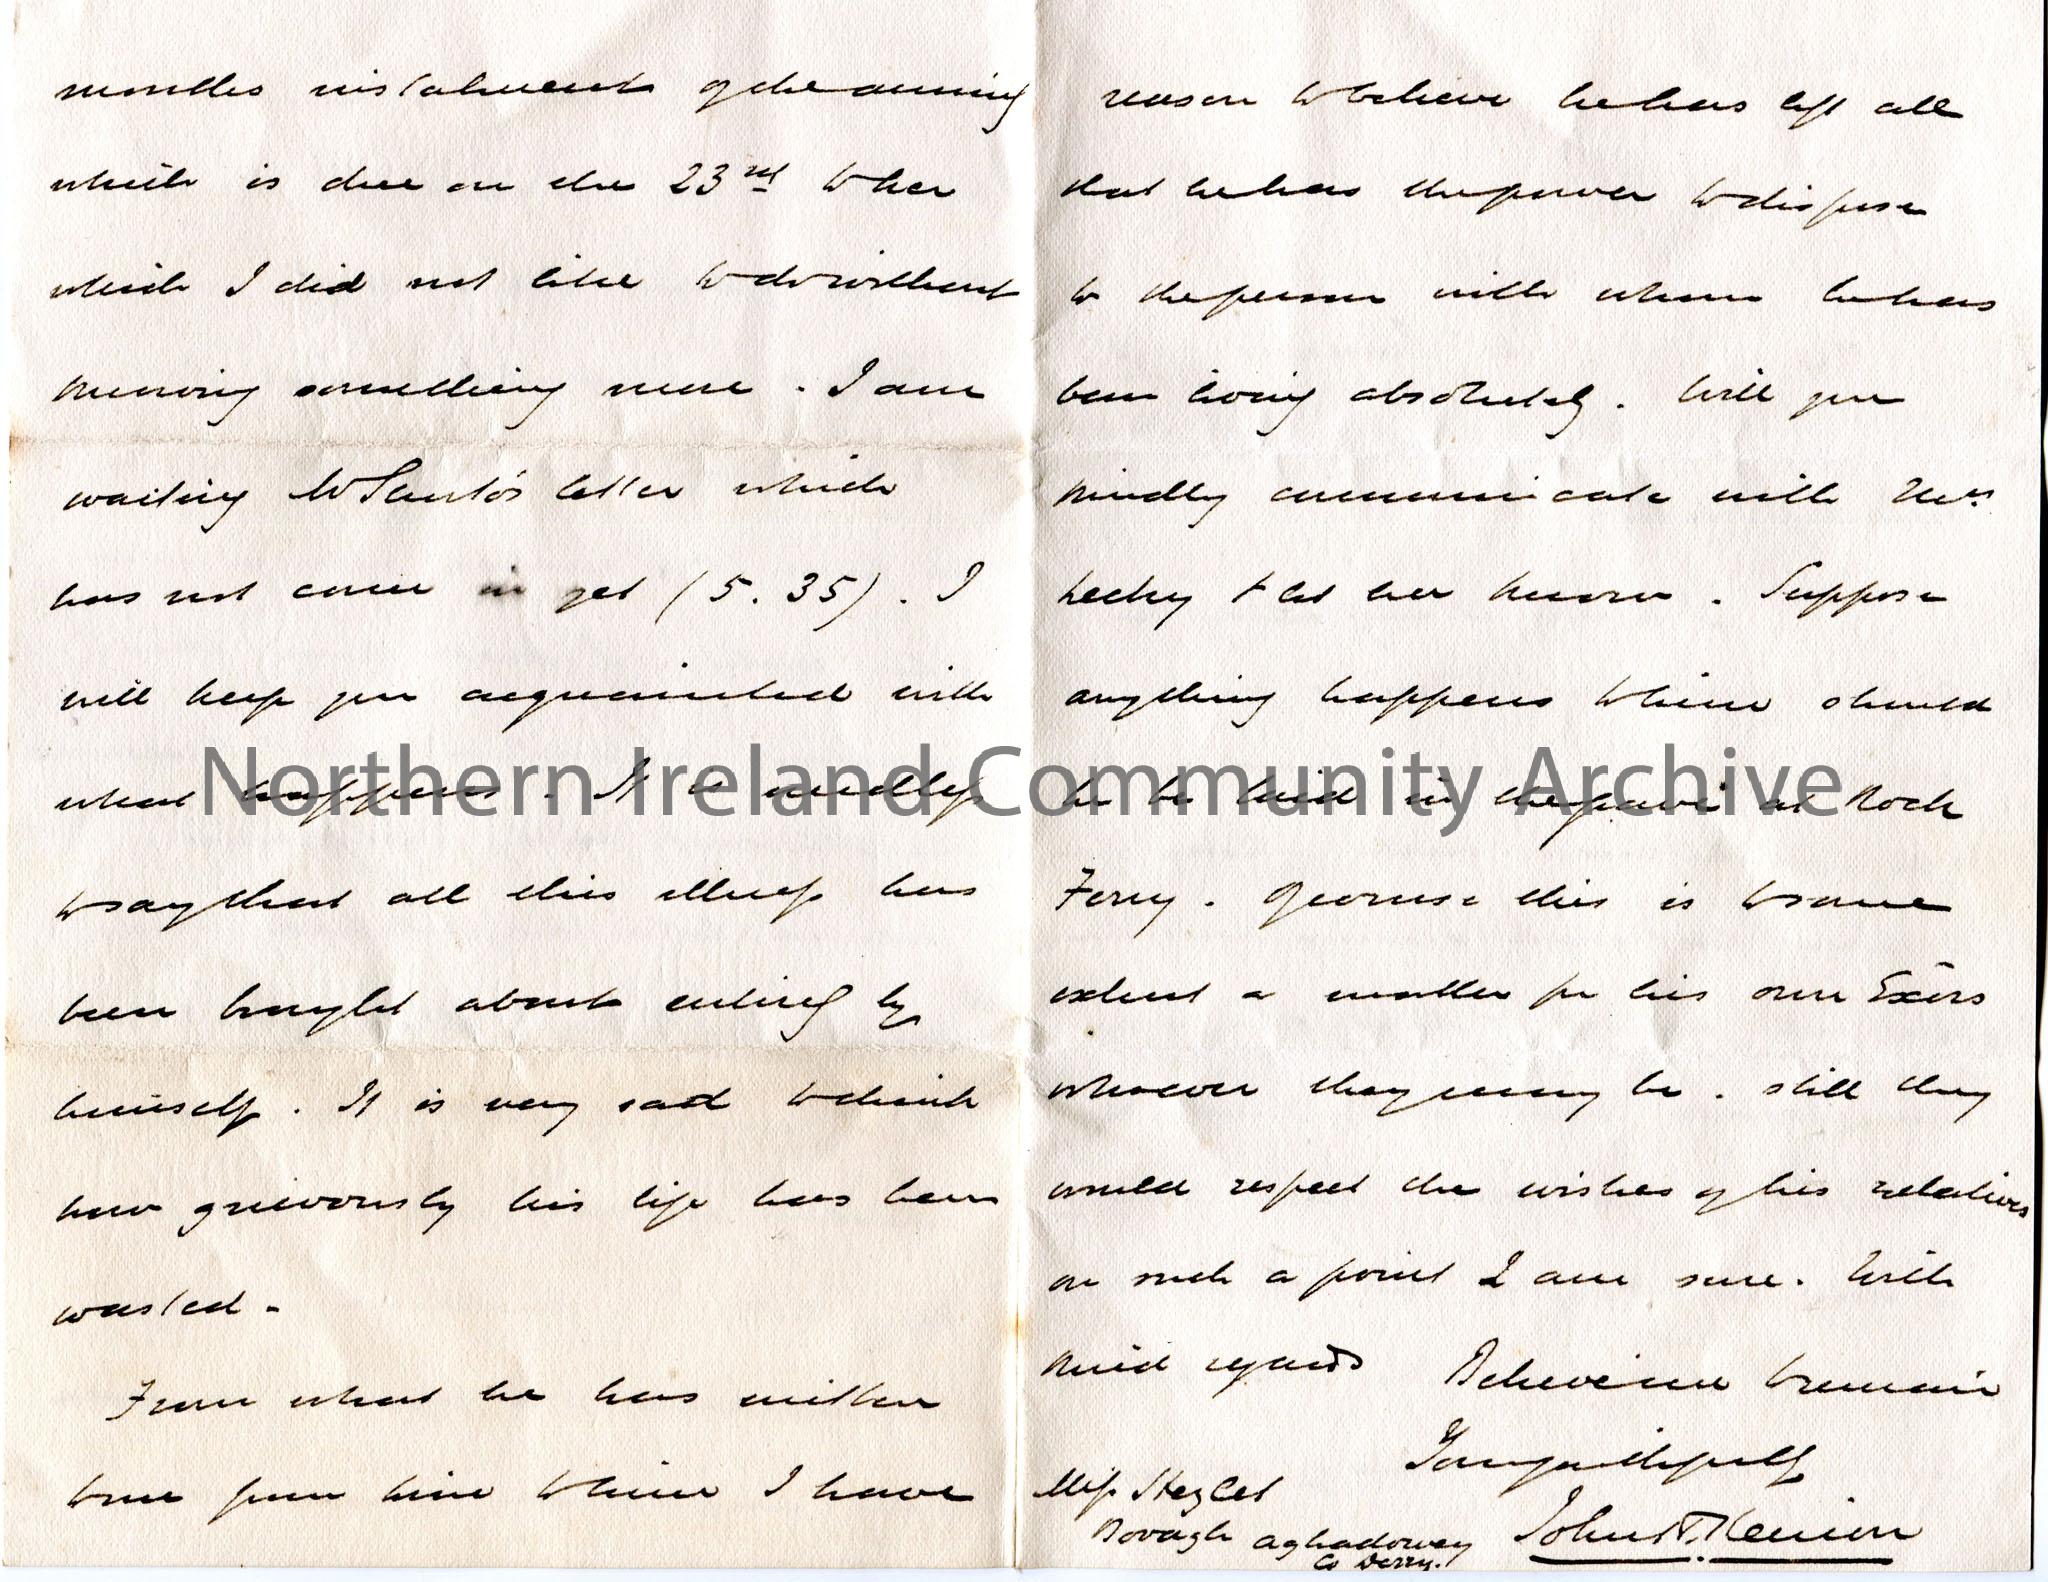 months instalment of the annuity
which is due on the 23rd to her
which I did not like to do without
knowing something more. I am
waiting letter which
has not come in yet (5.35). I
will keep you acquainted with
what happens. It is needless
to say that all this illness has
been brought about entirely by
himself. It is very sad to think
how grievously his life has been
wasted.
From what he has written
to me from time to time I have
reason to believe he has left all
that he has the power to dispose
to the person with whom he has
been living absolutely. Will you
kindly communicate with Mrs
Lecky & let her know. Suppose
anything happens to him should
he be laid in the grave at Rock
Ferry. Of course this is to some
extent a matter for his own Exors
whoever they may be. Still they
would respect the wishes of his relatives
on such a point I am sure. With
kind regards Believe me to remain
Yours faithfully
Miss Heyland
Bovagh Aghadowey John T. Kenion
Co Derry.
Northern Ireland Community Archive